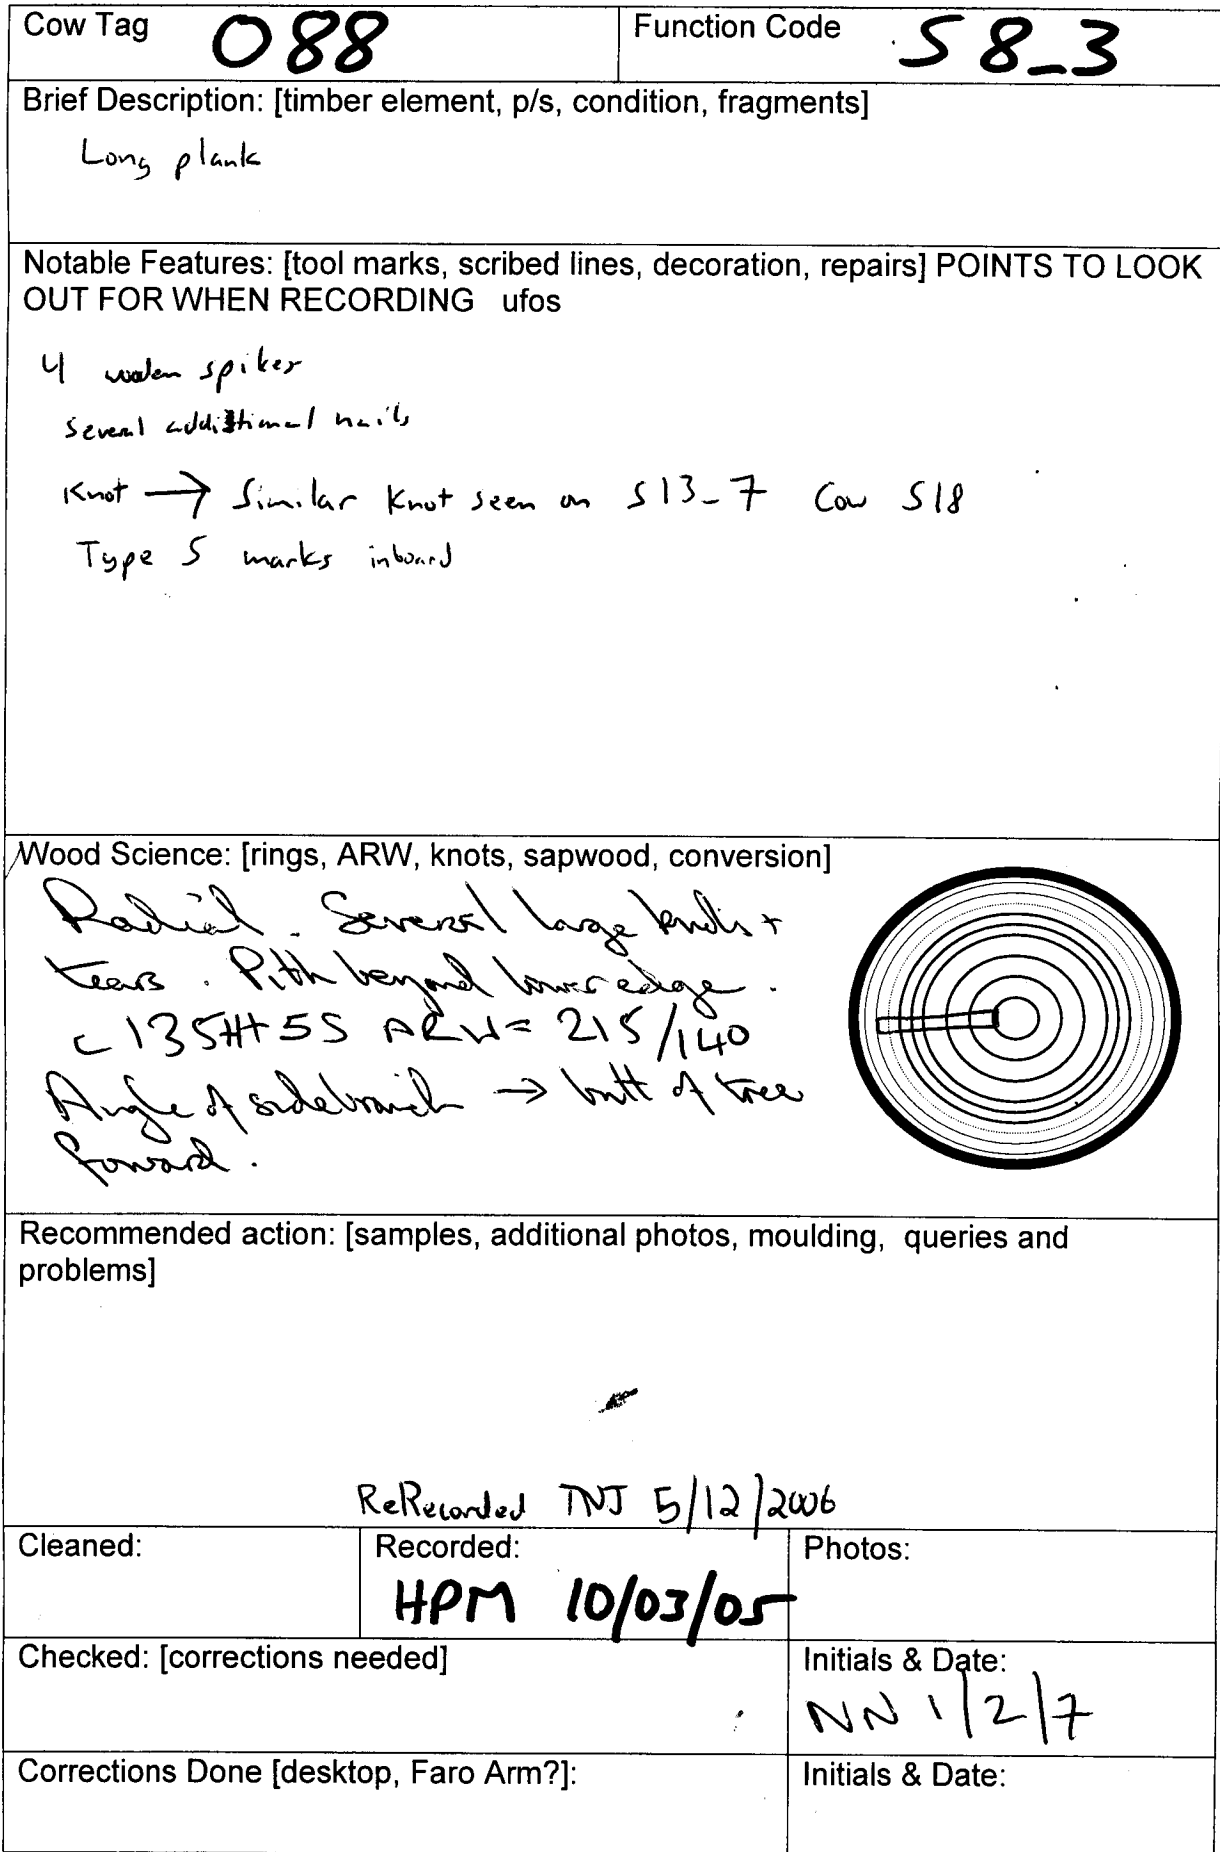 Cow Tag 088 Function Code S8_3
Brief Description: [timber element, p/s, condition, fragments]
Long plank
Notable Features: [tool marks, scribed lines, decoration, repairs] POINTS TO LOOK
OUT FOR WHEN RECORDING ufos
4 wooden spikes
Several additional nails
Knot → Similar Knot seen on S13_7 Cow 518
Type 5 marks inboard
Wood Science: [rings, ARW, knots, sapwood, conversion]
Radial. Several large +
tears. Pith beyond lower edge.
c 135H+5S ARW = 215/140
Angle of sidebranch → butt of tree
forward.
Recommended action: [samples, additional photos, moulding, queries and
problems]
ReRecorded TNJ 5/12/2006
Cleaned: Recorded: Photos:
HPM 10/03/05
Checked: [corrections needed] Initials & Date:
NN 1/2/7
Corrections Done [desktop, Faro Arm?]: Initials & Date: